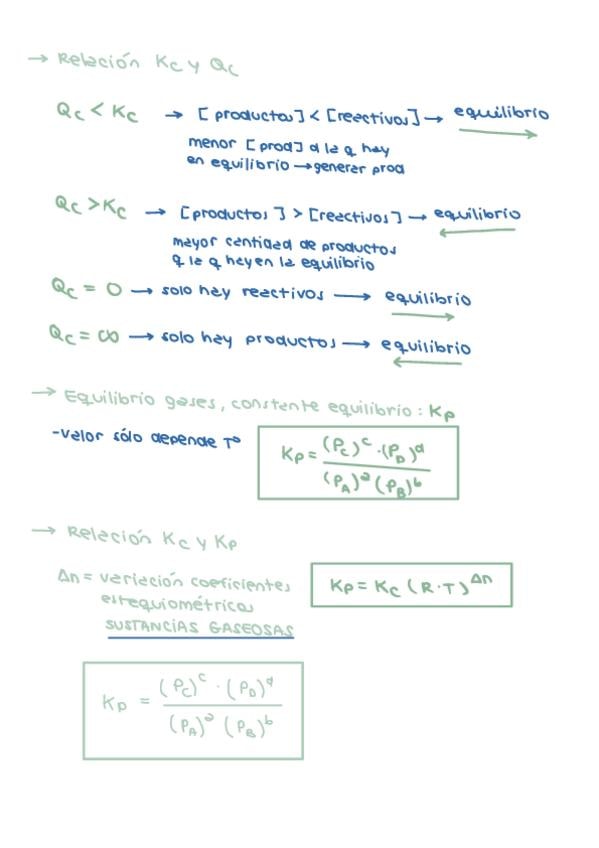 → Relación Kc y Qc
Qc < Kc → [productos] < [reactivos] → equilibrio →
menor [prod] a la q hay
en equilibrio → generar prod
Qc > Kc → [productos] > [reactivos] → equilibrio ←
mayor cantidad de productos
q la q hay en la equilibrio
Qc = 0 → solo hay reactivos → equilibrio →
Qc = ∞ → solo hay productos → equilibrio ←
→ Equilibrio gases, constante equilibrio: Kp
-Valor sólo depende Tº
Kp = (Pc)^c · (PD)^d / (PA)^a (PB)^b
→ Relación Kc y Kp
Δn = variación coeficientes
estequiométricos
SUSTANCIAS GASEOSAS
Kp = Kc (R·T)^Δn
Kp = (Pc)^c · (PD)^d / (PA)^a (PB)^b